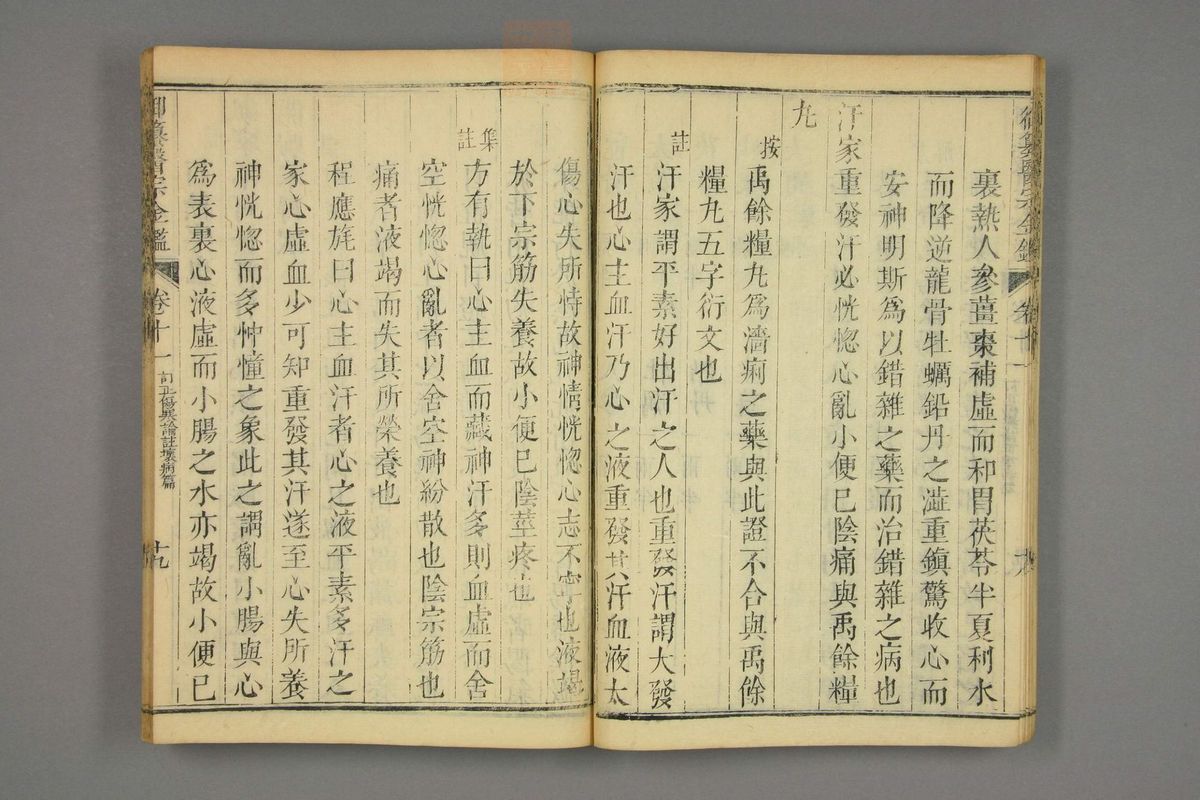 裏熱人參薑棗補虛而和胃茯苓半夏利水
而降逆龍骨牡蠣鉛丹之澁重鎮驚收心而
安神明斯為以錯雜之藥而治錯雜之病也
汗家重發汗必恍惚心亂小便已陰痛與禹餘糧
丸
按禹餘糧丸為濇痢之藥與此證不合與禹餘
糧丸五字衍文也
註汗家謂平素好出汗之人也重發汗謂大發
汗也心主血汗乃心之液重發其汗血液太
傷心失所恃故神情恍惚心志不寧也液竭
於下宗筋失養故小便已陰莖疼也
集註方有執曰心主血而藏神汗多則血虛而舍
空恍惚心亂者以舍空神紛散也陰宗筋也
痛者液竭而失其所榮養也
程應旄曰心主血汗者心之液平素多汗之
家心虛血少可知重發其汗遂至心失所養
神恍惚而多忡憧之象此之謂亂小腸與心
為表裏心液虛而小腸之水亦竭故小便已
御纂醫宗金鑑 卷十一 訂正傷寒論註壞病篇 十九